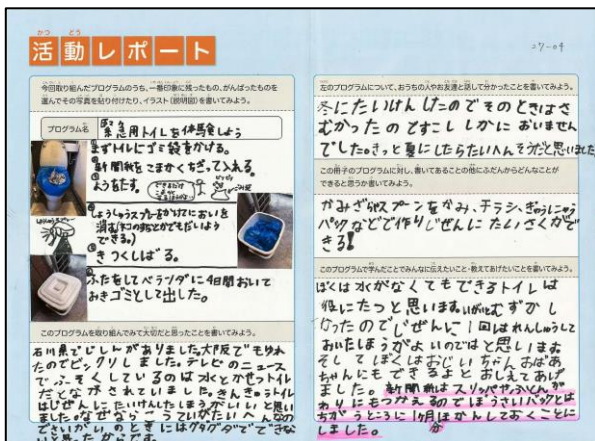 かつ どう
活動レポート
27-04
今回取り組んだプログラムのうち、一番印象に残ったもの、がんばったものを
選んでその写真を貼り付けたり、イラスト(説明図)を書いてみよう。
プログラム名
急応用トイレを体験しよう
まずトイレにゴミ袋をかける。
新聞紙をこまかくちぎって入れる。
ようをたす。
しょうしゅうスプレーをかけてにおいを
消す(ネコのすなとかでもだいよう
できる。)
きつくしばる。
ふたをしてベランダに4日間おいて
おきゴミとして出した。
このプログラムを取り組んでみて大切だと思ったことを書いてみよう。
石川県でじしんがありました。大阪でもゆれ
たのでビックリしました。テレビのニュース
でふそくしているのは水とかせつトイレ
だとながされていました。きんきゅうトイレ
はじぜんにたいけんしたほうがいいと思い
ました。なぜならこういうたいへんな
のときにはグダグダでできな
いと思ったからです。
左のプログラムについて、おうちの人やお友達と話して分かったことを書いてみよう。
冬にたいけんしたのでそのときはさ
むかったのとすこししかにおいません
でした。きっと夏にしたらたいへんそうだと思いました
この冊子のプログラムに対し、書いてあることの他にふだんからどんなことが
できると思うか書いてみよう。
かみざらやスプーンをかみ、チラシ、ぎゅうにゅう
パックなどで作りじぜんにたいさくがで
きる!
このプログラムで学んだことでみんなに伝えたいこと・教えてあげたいことを書いてみよう。
ぼくは水がなくてもできるトイレは
役にたつと思います。いがいとむずかし
かったのでじぜんに1回はれんしゅうして
おいたほうがよいのではと思います。
そしてぼくはおじいちゃんおばあ
ちゃんにもできるよとおしえてあげ
ました。新聞紙はスリッパやふとんが
わりにもつかえるのでぼうさいバックとは
ちがうところに1ヶ月分ほかんしておくことに
しました。